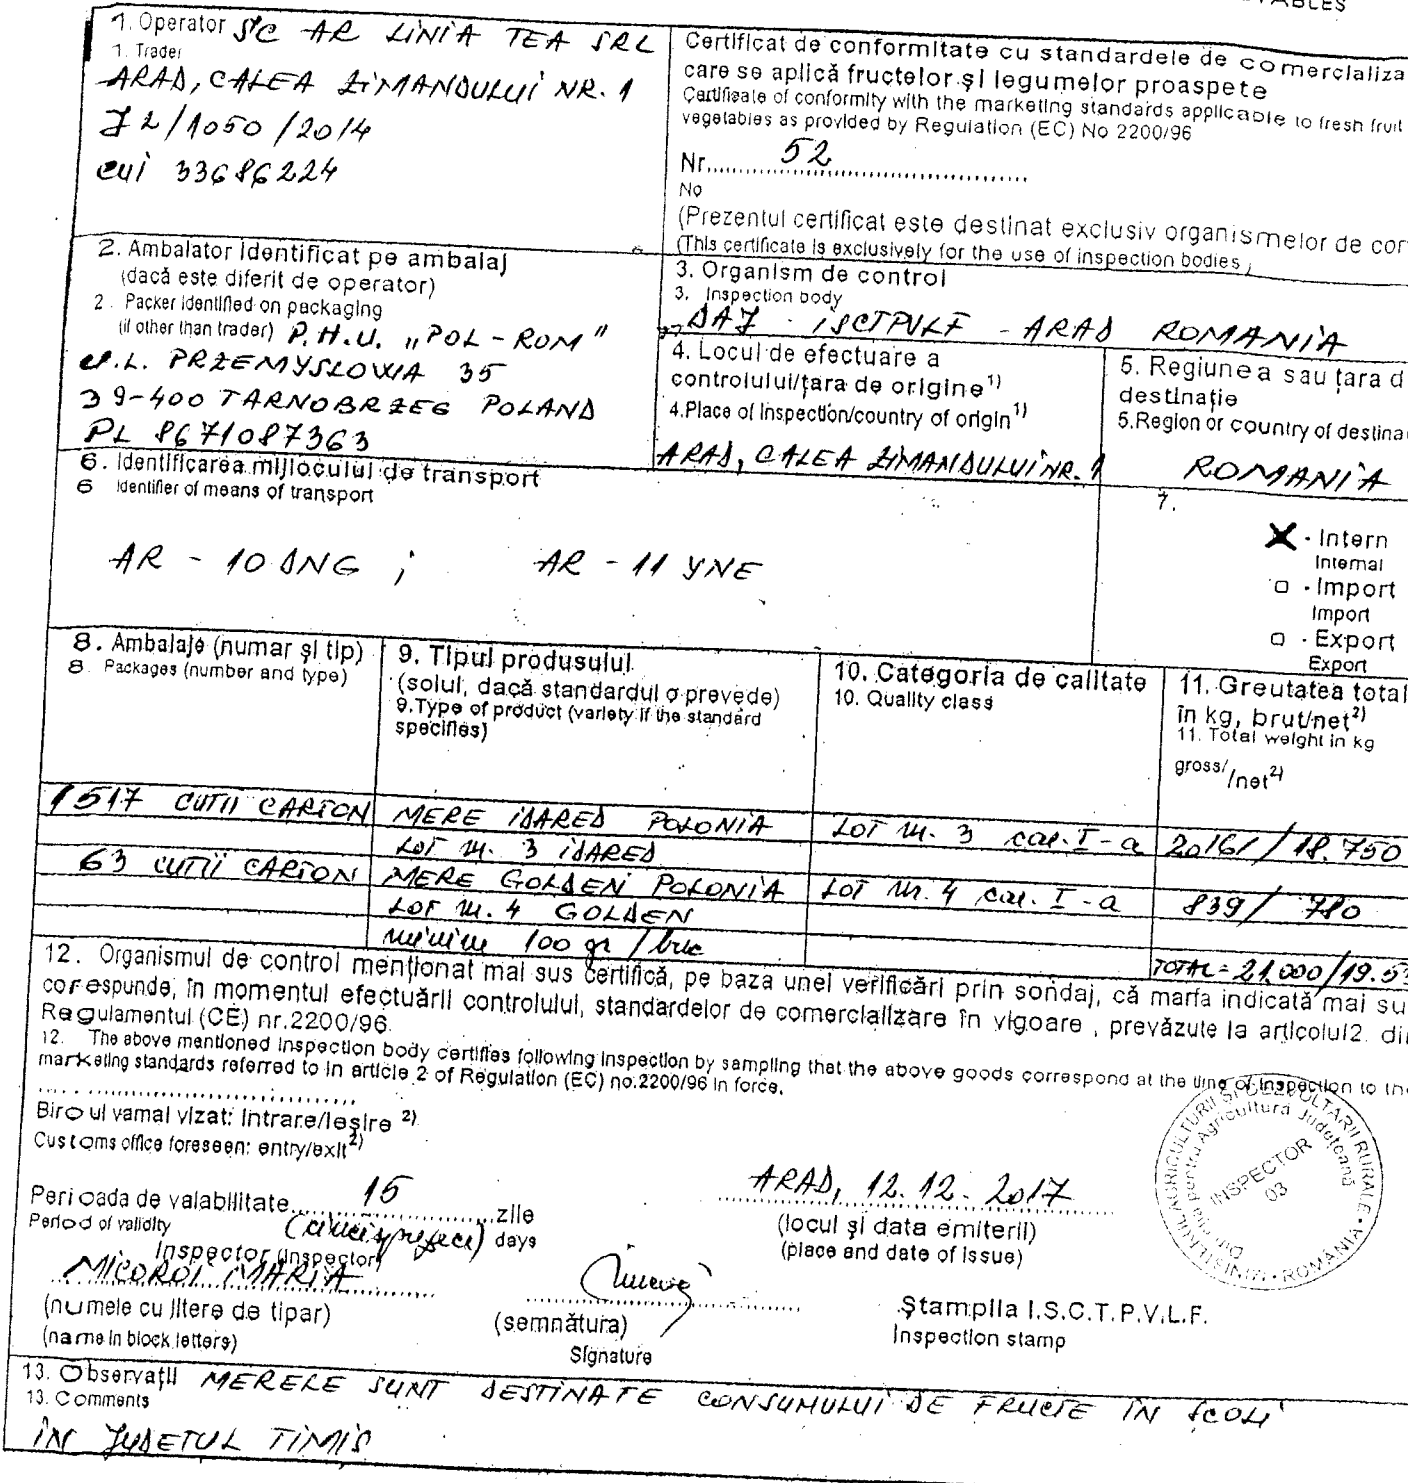 TABLES
1. Operator S'C AR LINIA TEA SRL
1. Trader
ARAD, CALEA ZIMANDULUI NR. 1
J2/1050/2014
cui 33686224
Certificat de conformitate cu standardele de comercializa
care se aplică fructelor și legumelor proaspete
Certificate of conformity with the marketing standards applicable to fresh fruit
vegetables as provided by Regulation (EC) No 2200/96
Nr. 52
No
(Prezentul certificat este destinat exclusiv organismelor de con
(This certificate is exclusively for the use of inspection bodies)
2. Ambalator identificat pe ambalaj
(dacă este diferit de operator)
2. Packer identified on packaging
(if other than trader) P.H.U. "POL-ROM"
U.L. PRZEMYSLOWIA 35
39-400 TARNOBRZEG POLAND
PL 8671087363
3. Organism de control
3. Inspection body
DAJ - ISCTPVLF - ARAD ROMANIA
4. Locul de efectuare a
controlului/țara de origine 1)
4. Place of inspection/country of origin 1)
ARAD, CALEA ZIMANDULUI NR. 1
5. Regiunea sau țara d
destinație
5. Region or country of destina
ROMANIA
6. Identificarea mijlocului de transport
6 Identifier of means of transport
AR - 10 DNG ; AR - 11 YNE
7.
X - Intern
Internal
□ - Import
Import
□ - Export
Export
8. Ambalaje (numar și tip)
8. Packages (number and type)
9. Tipul produsului
(soiul, dacă standardul o prevede)
9. Type of product (variety if the standard
specifies)
10. Categoria de calitate
10. Quality class
11. Greutatea total
în kg, brut/net 2)
11. Total weight in kg
gross/ /net 2)
1517 CUTII CARTON MERE IDARED POLONIA LOT nr. 3 cal. I-a 20161/18.750
LOT nr. 3 IDARED
63 CUTII CARTON MERE GOLDEN POLONIA LOT nr. 4 cal. I-a 839/ 780
LOT nr. 4 GOLDEN
minim 100 gr/buc
TOTAL = 21.000/19.53
12. Organismul de control menționat mai sus certifică, pe baza unei verificări prin sondaj, că marfa indicată mai su
corespunde, în momentul efectuării controlului, standardelor de comercializare în vigoare , prevăzute la articolul2. di
Regulamentul (CE) nr.2200/96.
12. The above mentioned inspection body certifies following inspection by sampling that the above goods correspond at the time of inspection to the
marketing standards referred to in article 2 of Regulation (EC) no.2200/96 in force.
Biroul vamal vizat: intrare/ieșire 2)
Customs office foreseen: entry/exit 2)
Perioada de valabilitate 15 zile
Period of validity (cincisprezece) days
ARAD, 12.12.2017
(locul și data emiterii)
(place and date of issue)
Inspector (Inspector)
MICOROI MARIA
(numele cu litere de tipar)
(name in block letters)
(semnătura)
Signature
Ștampila I.S.C.T.P.V.L.F.
Inspection stamp
INSPECTOR
03
ROMANIA
13. Observații MERELE SUNT DESTINATE CONSUMULUI DE FRUCTE IN SCOLI
13. Comments
IN JUDETUL TIMIS